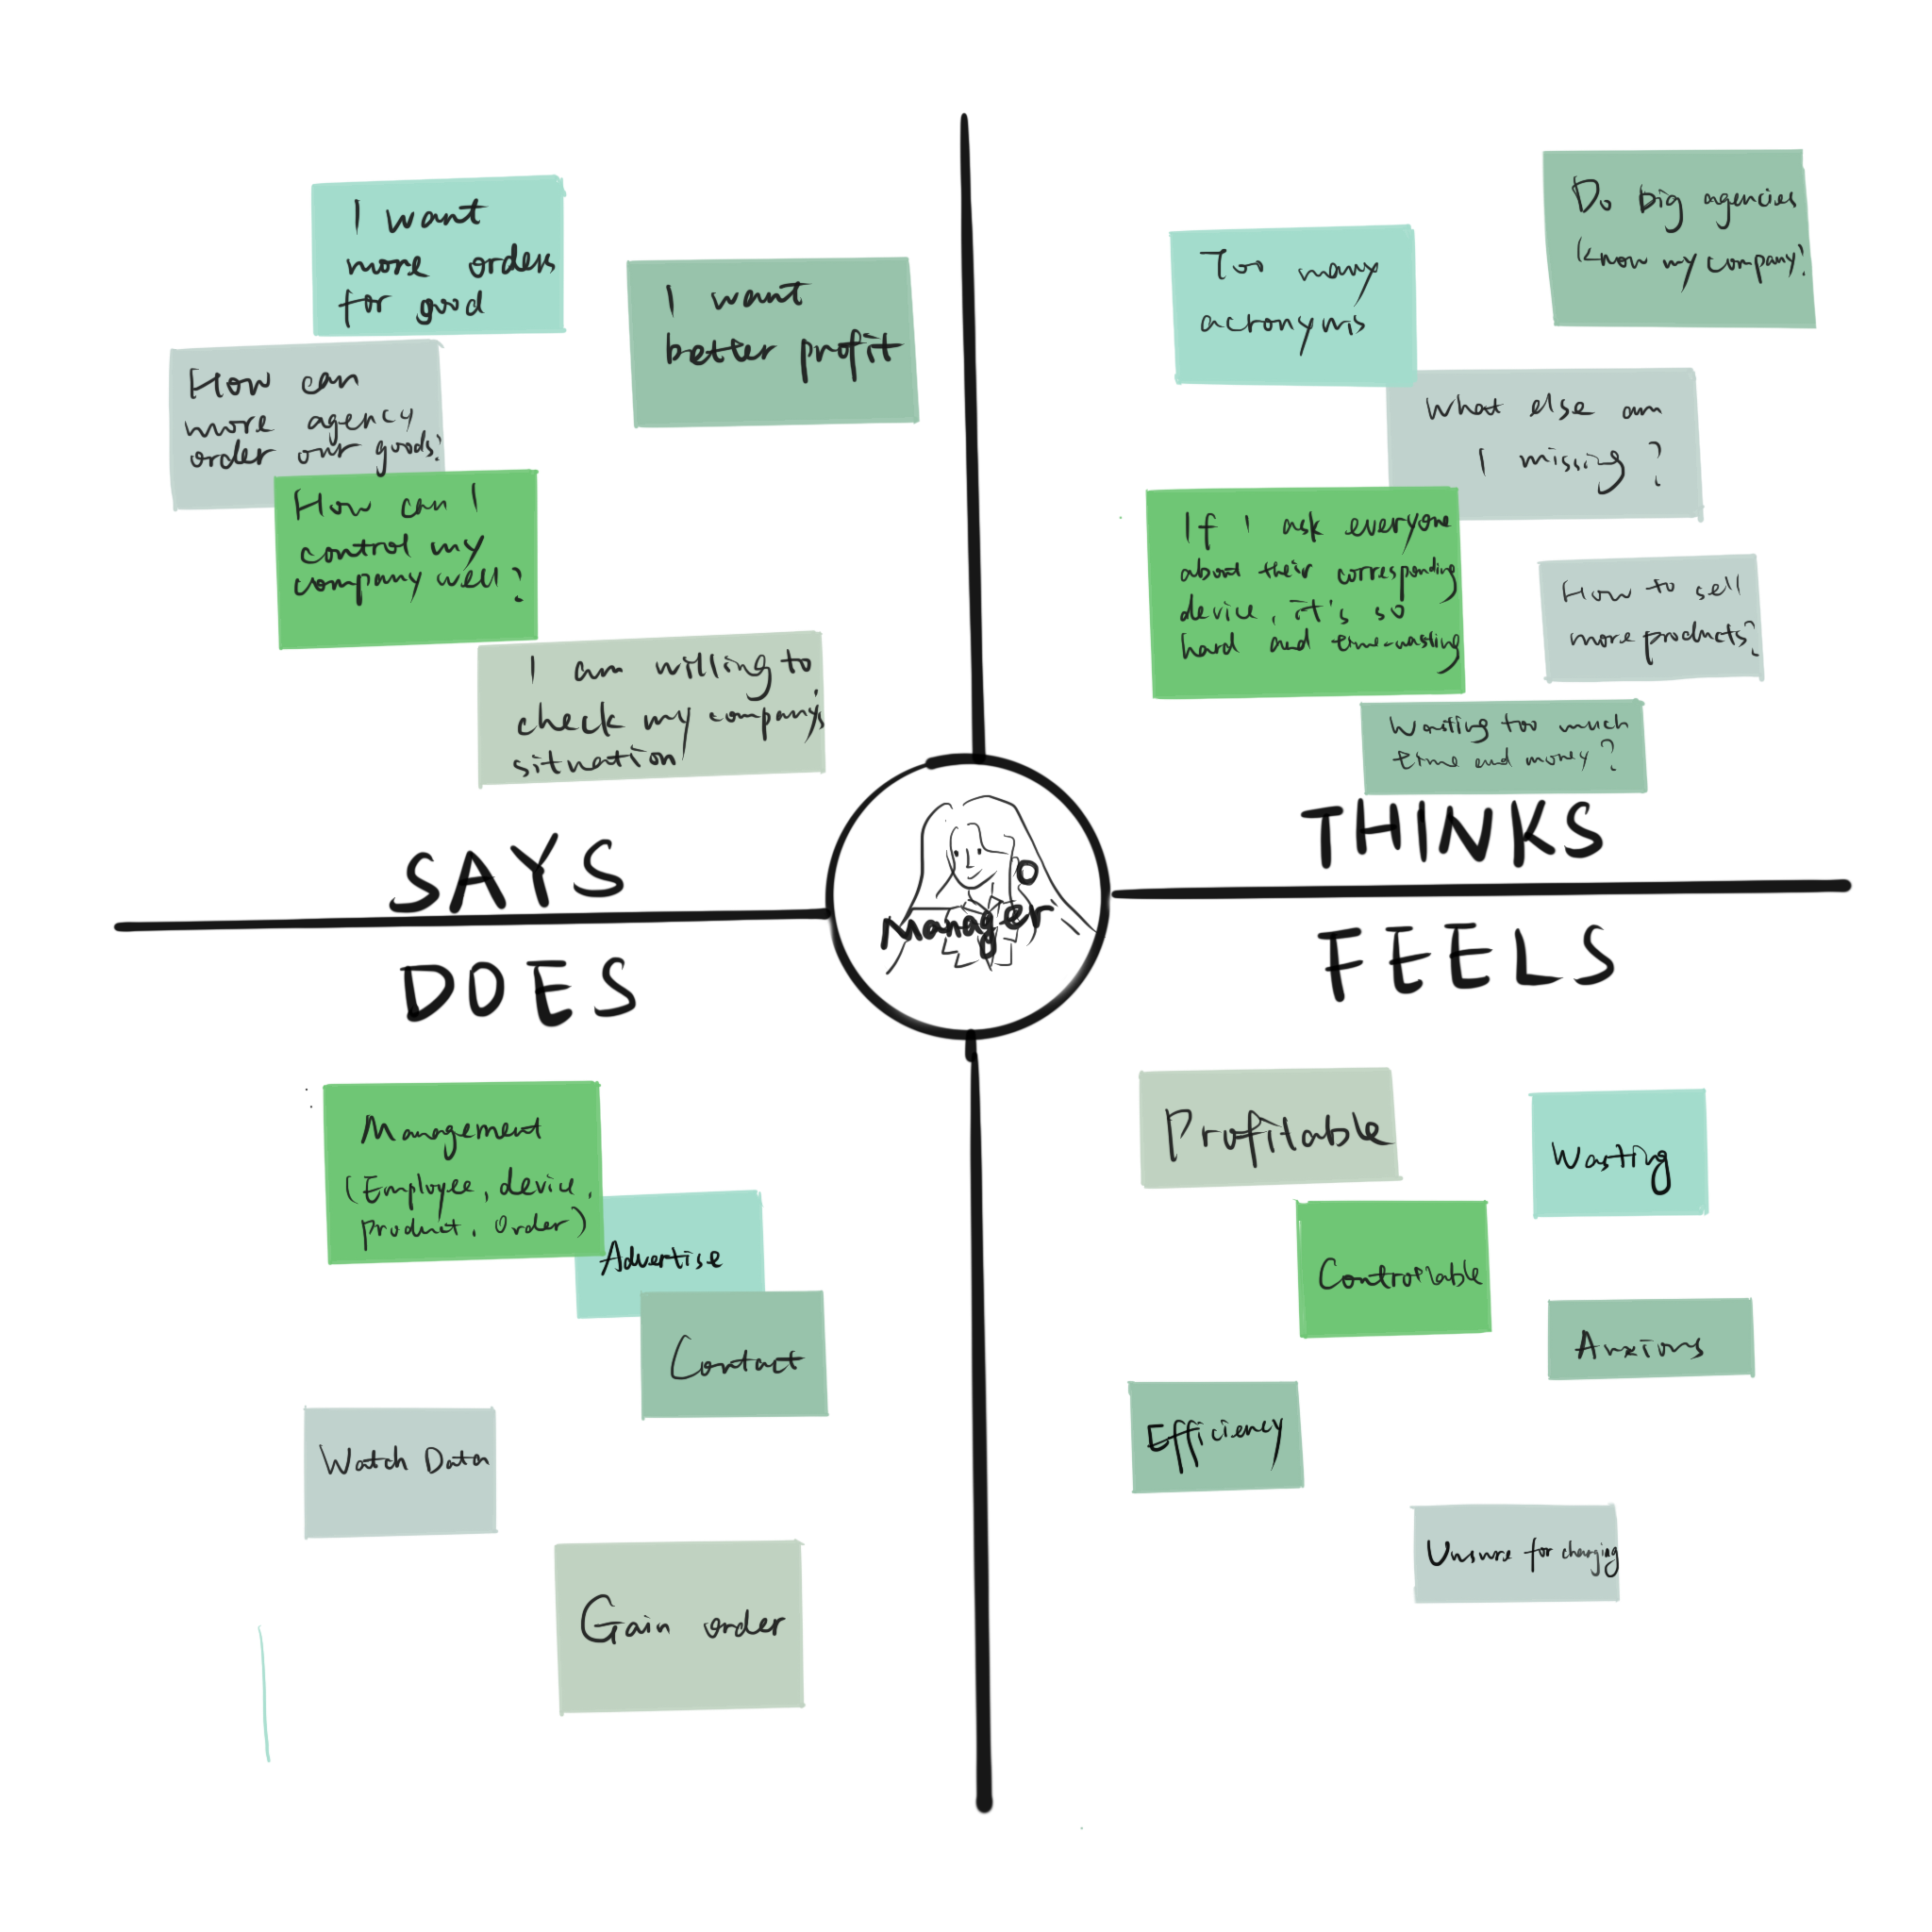 I want
more orders
for good
I want
better profit
How can
more agency
order our goods?
How can I
control my
company well?
I am willing to
check my company's
situation
SAYS
Too many
acronyms
Do big agencies
know my company?
What else am
I missing?
If I ask everyone
about their corresponding
device, it's so
hard and time-wasting
How to sell
more products?
Wasting too much
time and money?
THINKS
Manager
DOES
Management
(Employee, device,
product, Order)
Advertise
Contact
Watch Data
Gain order
FEELS
Profitable
Wasting
Controllable
Anxious
Efficiency
Unsure for changing